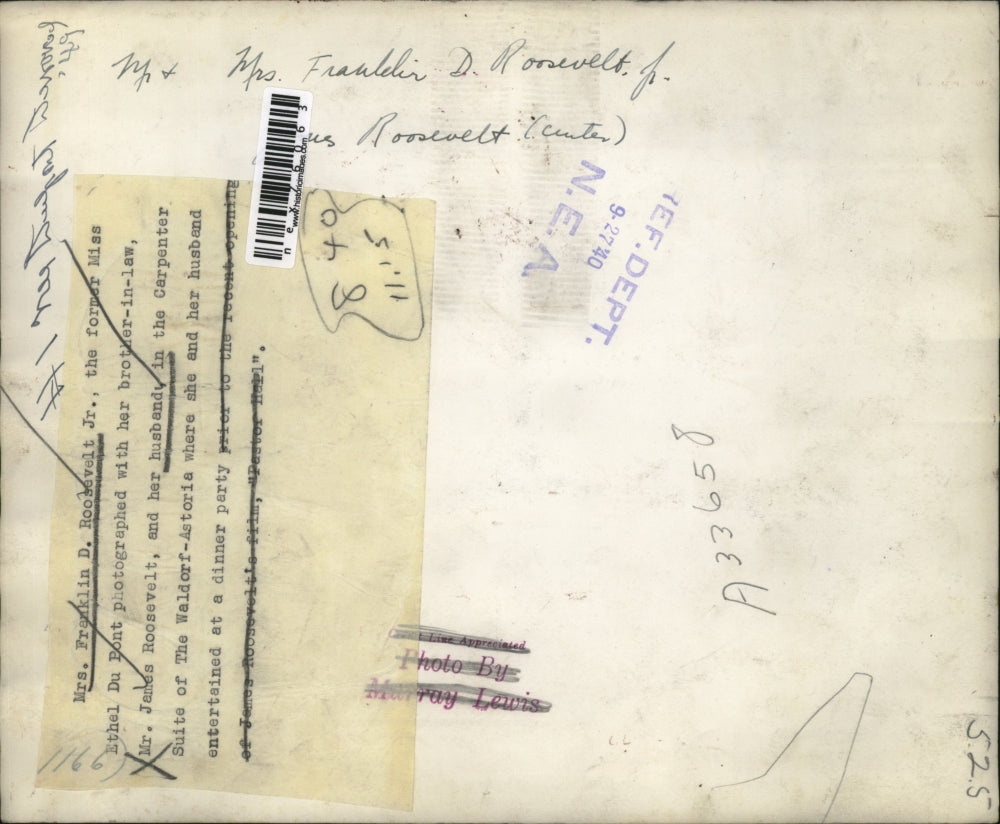 Mr + Mrs. Franklin D. Roosevelt, Jr.
Roosevelt (center)
nex26063
www.historicimages.com
REF. DEPT.
9-27 40
N.E.A.
8 40
Mrs. Franklin D. Roosevelt Jr., the former Miss
Ethel Du Pont photographed with her brother-in-law,
Mr. James Roosevelt, and her husband, in the Carpenter
Suite of The Waldorf-Astoria where she and her husband
entertained at a dinner party prior to the recent opening
of James Roosevelt's film, "Pastor Hall".
A33658
Line Appreciated
Photo By
Murray Lewis
5.2.5